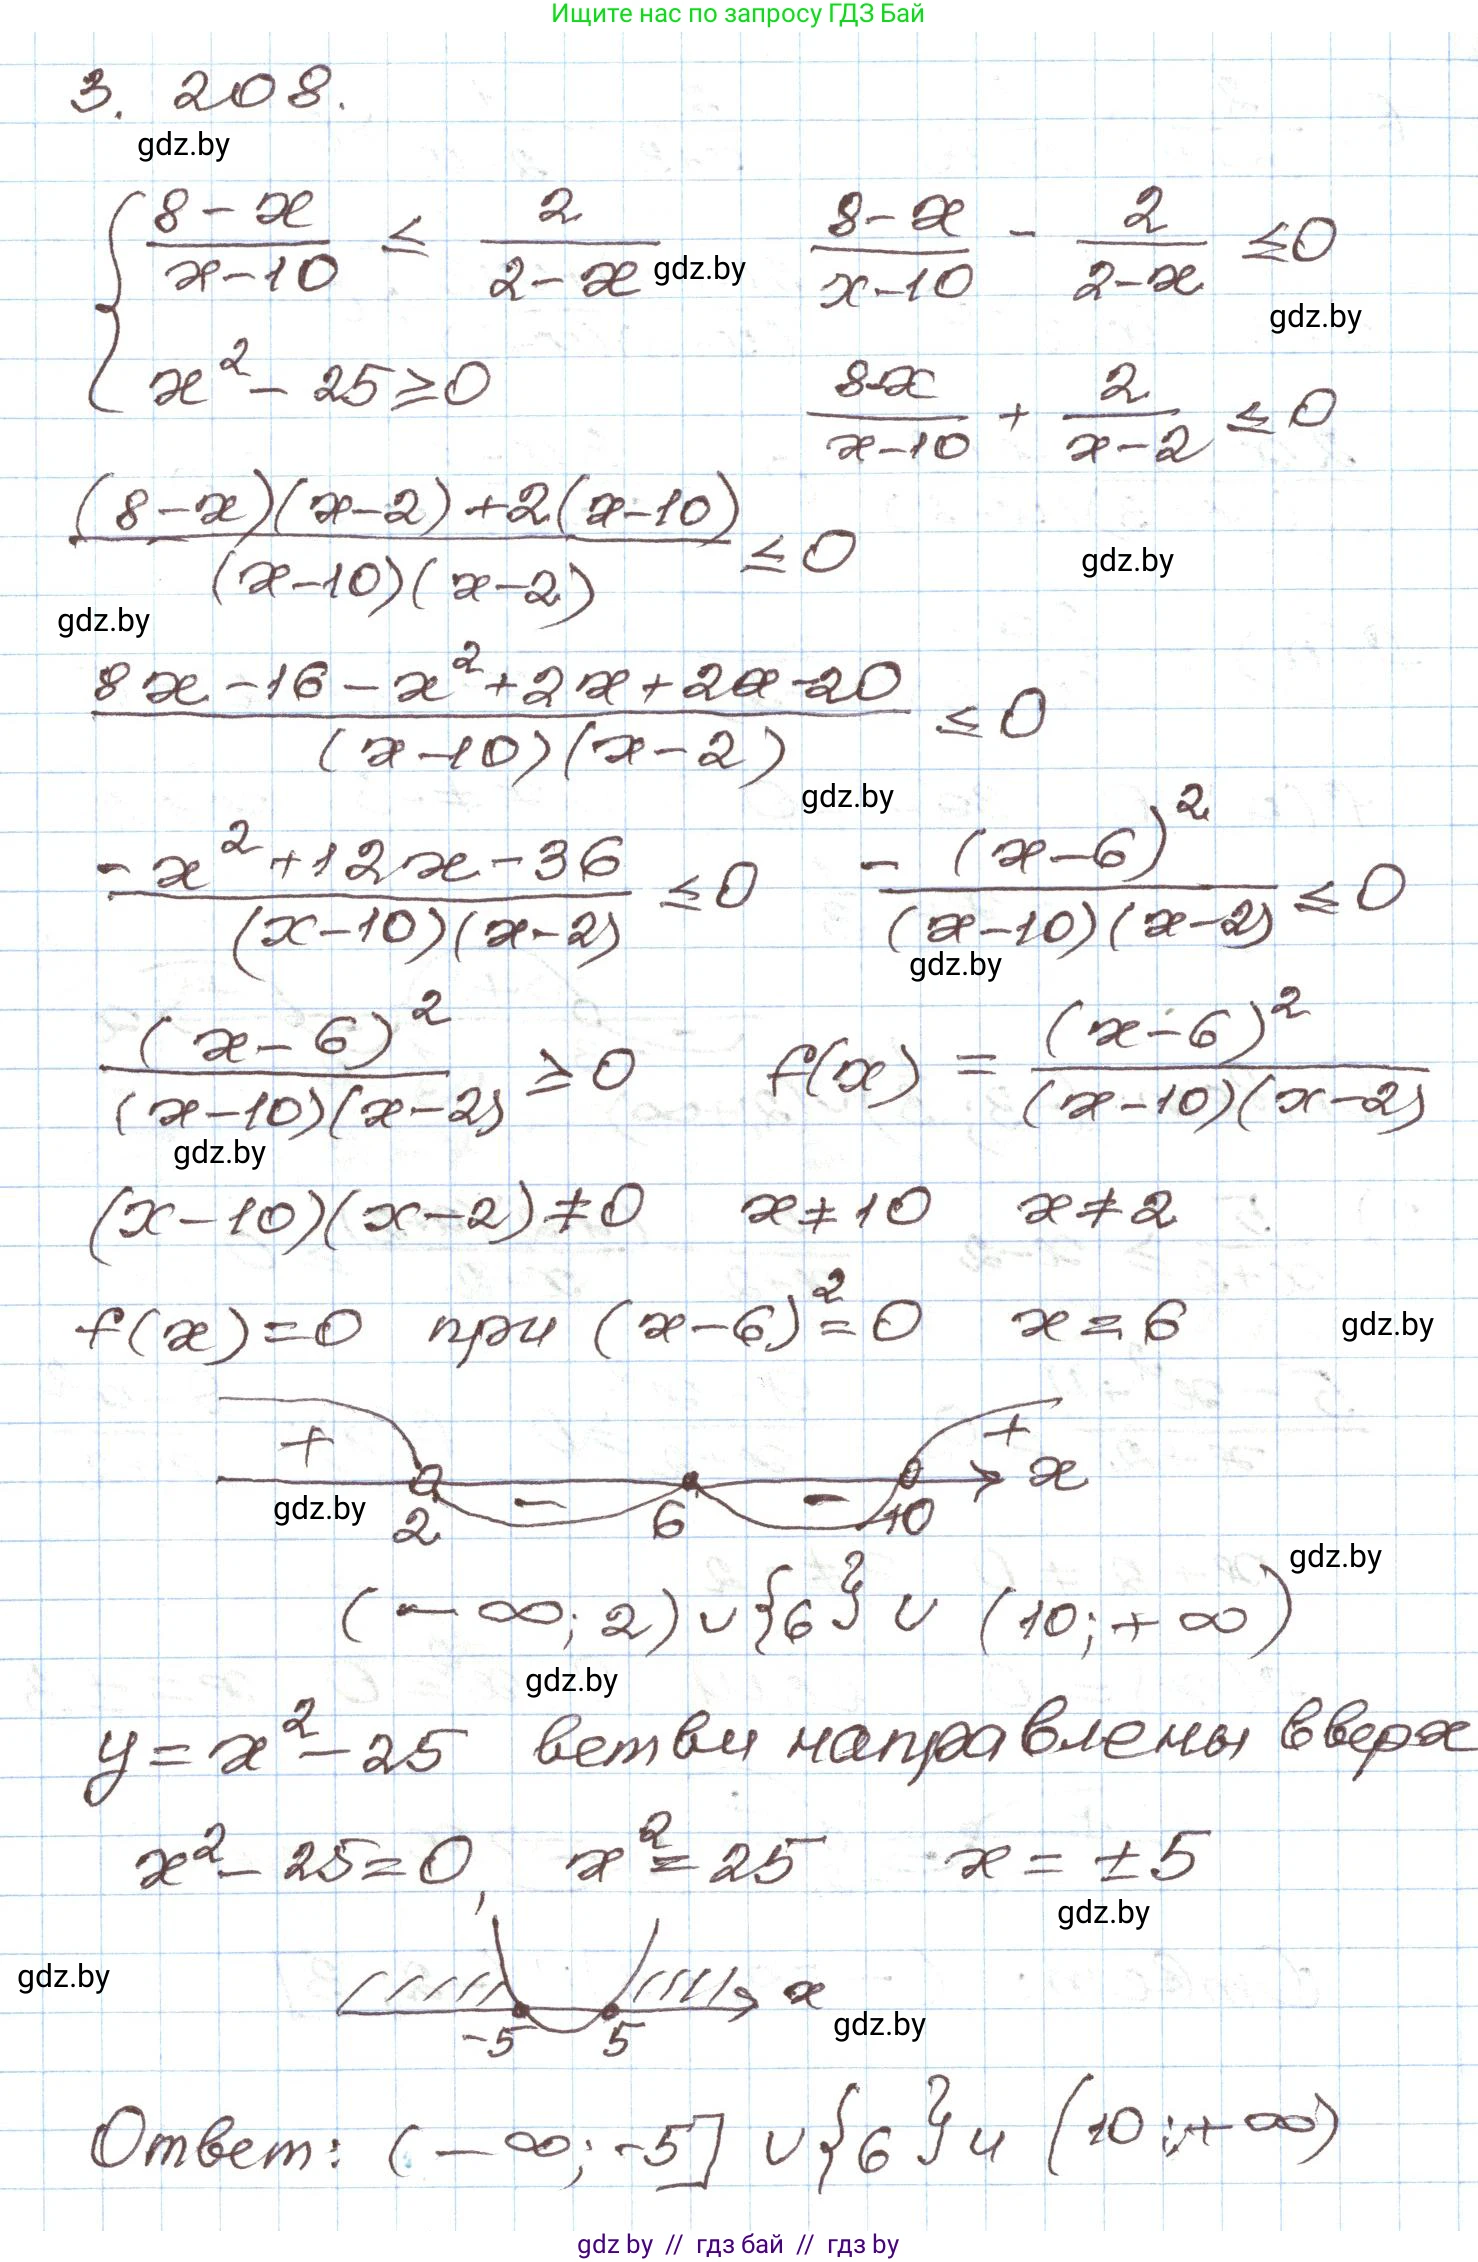 Ищите нас по запросу ГДЗ Бай
3. 208.
gdz.by
{ (8-x)/(x-10) ≤ 2/(2-x) gdz.by (8-x)/(x-10) - 2/(2-x) ≤0
gdz.by
x²- 25≥0 (8-x)/(x-10) + 2/(x-2) ≤0
((8-x)(x-2)+2(x-10))/((x-10)(x-2)) ≤0 gdz.by
gdz.by
(8x-16-x²+2x+2x-20)/((x-10)(x-2)) ≤0
gdz.by
(-x²+12x-36)/((x-10)(x-2)) ≤0 -(x-6)²/((x-10)(x-2)) ≤0
gdz.by
(x-6)²/((x-10)(x-2)) ≥0 f(x) = (x-6)²/((x-10)(x-2))
gdz.by
(x-10)(x-2)≠0 x≠10 x≠2
f(x)=0 при (x-6)²=0 x=6 gdz.by
+ - - + x
gdz.by 2 6 10
gdz.by
(-∞; 2)∪{6}∪(10;+∞)
gdz.by
y=x²-25 ветви направлены вверх
x²-25=0, x²=25 x=±5
gdz.by
gdz.by
x
-5 5 gdz.by
Ответ: (-∞;-5]∪{6}∪(10;+∞)
gdz by // гдз бай // гдз by